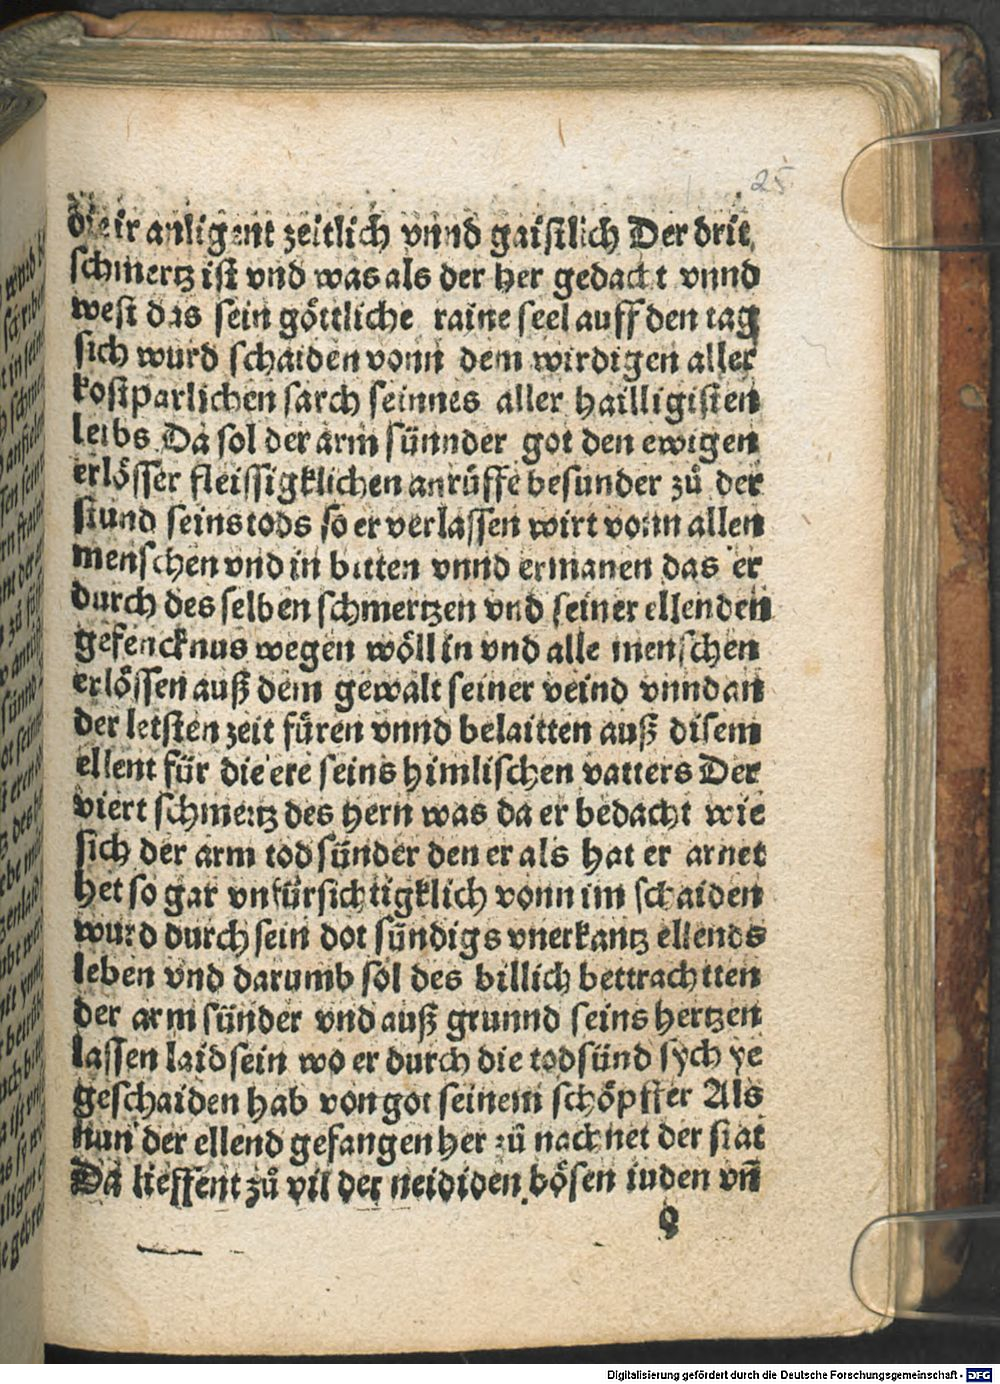 25
die ir anligent zeitlich vnnd gaistlich Der drit
schmertz ist vnd was als der her gedacht vnnd
west das sein göttliche raine seel auff den tag
sich wurd schaiden vonn dem wirdigen aller
kostparlichen sarch seinnes aller hailligisten
leibs Da sol der arm sünnder got den ewigen
erlösser fleissigklichen anrüffe besunder zů der
stund seins tods so er verlassen wirt vonn allen
menschen vnd in bitten vnnd ermanen das er
durch des selben schmertzen vnd seiner ellenden
gefencknus wegen wöll in vnd alle menschen
erlössen auß dem gewalt seiner veind vnnd an
der letsten zeit füren vnnd belaitten auß disem
ellent für die ere seins himlischen vatters Der
viert schmertz des hern was da er bedacht wie
sich der arm tod sünder den er als hat er arnet
het so gar vnfürsichtigklich vonn im schaiden
wurd durch sein dot sündigs vnerkantz ellends
leben vnd darumb sol des billich bettrachtten
der arm sünder vnd auß grunnd seins hertzen
lassen laid sein wo er durch die todsünd sych ye
geschaiden hab von got seinem schöpffer Als
nun der ellend gefangen her zů nachnet der stat
Da lieffent zů vil der neididen bösen iuden vñ
Digitalisierung gefördert durch die Deutsche Forschungsgemeinschaft - DFG